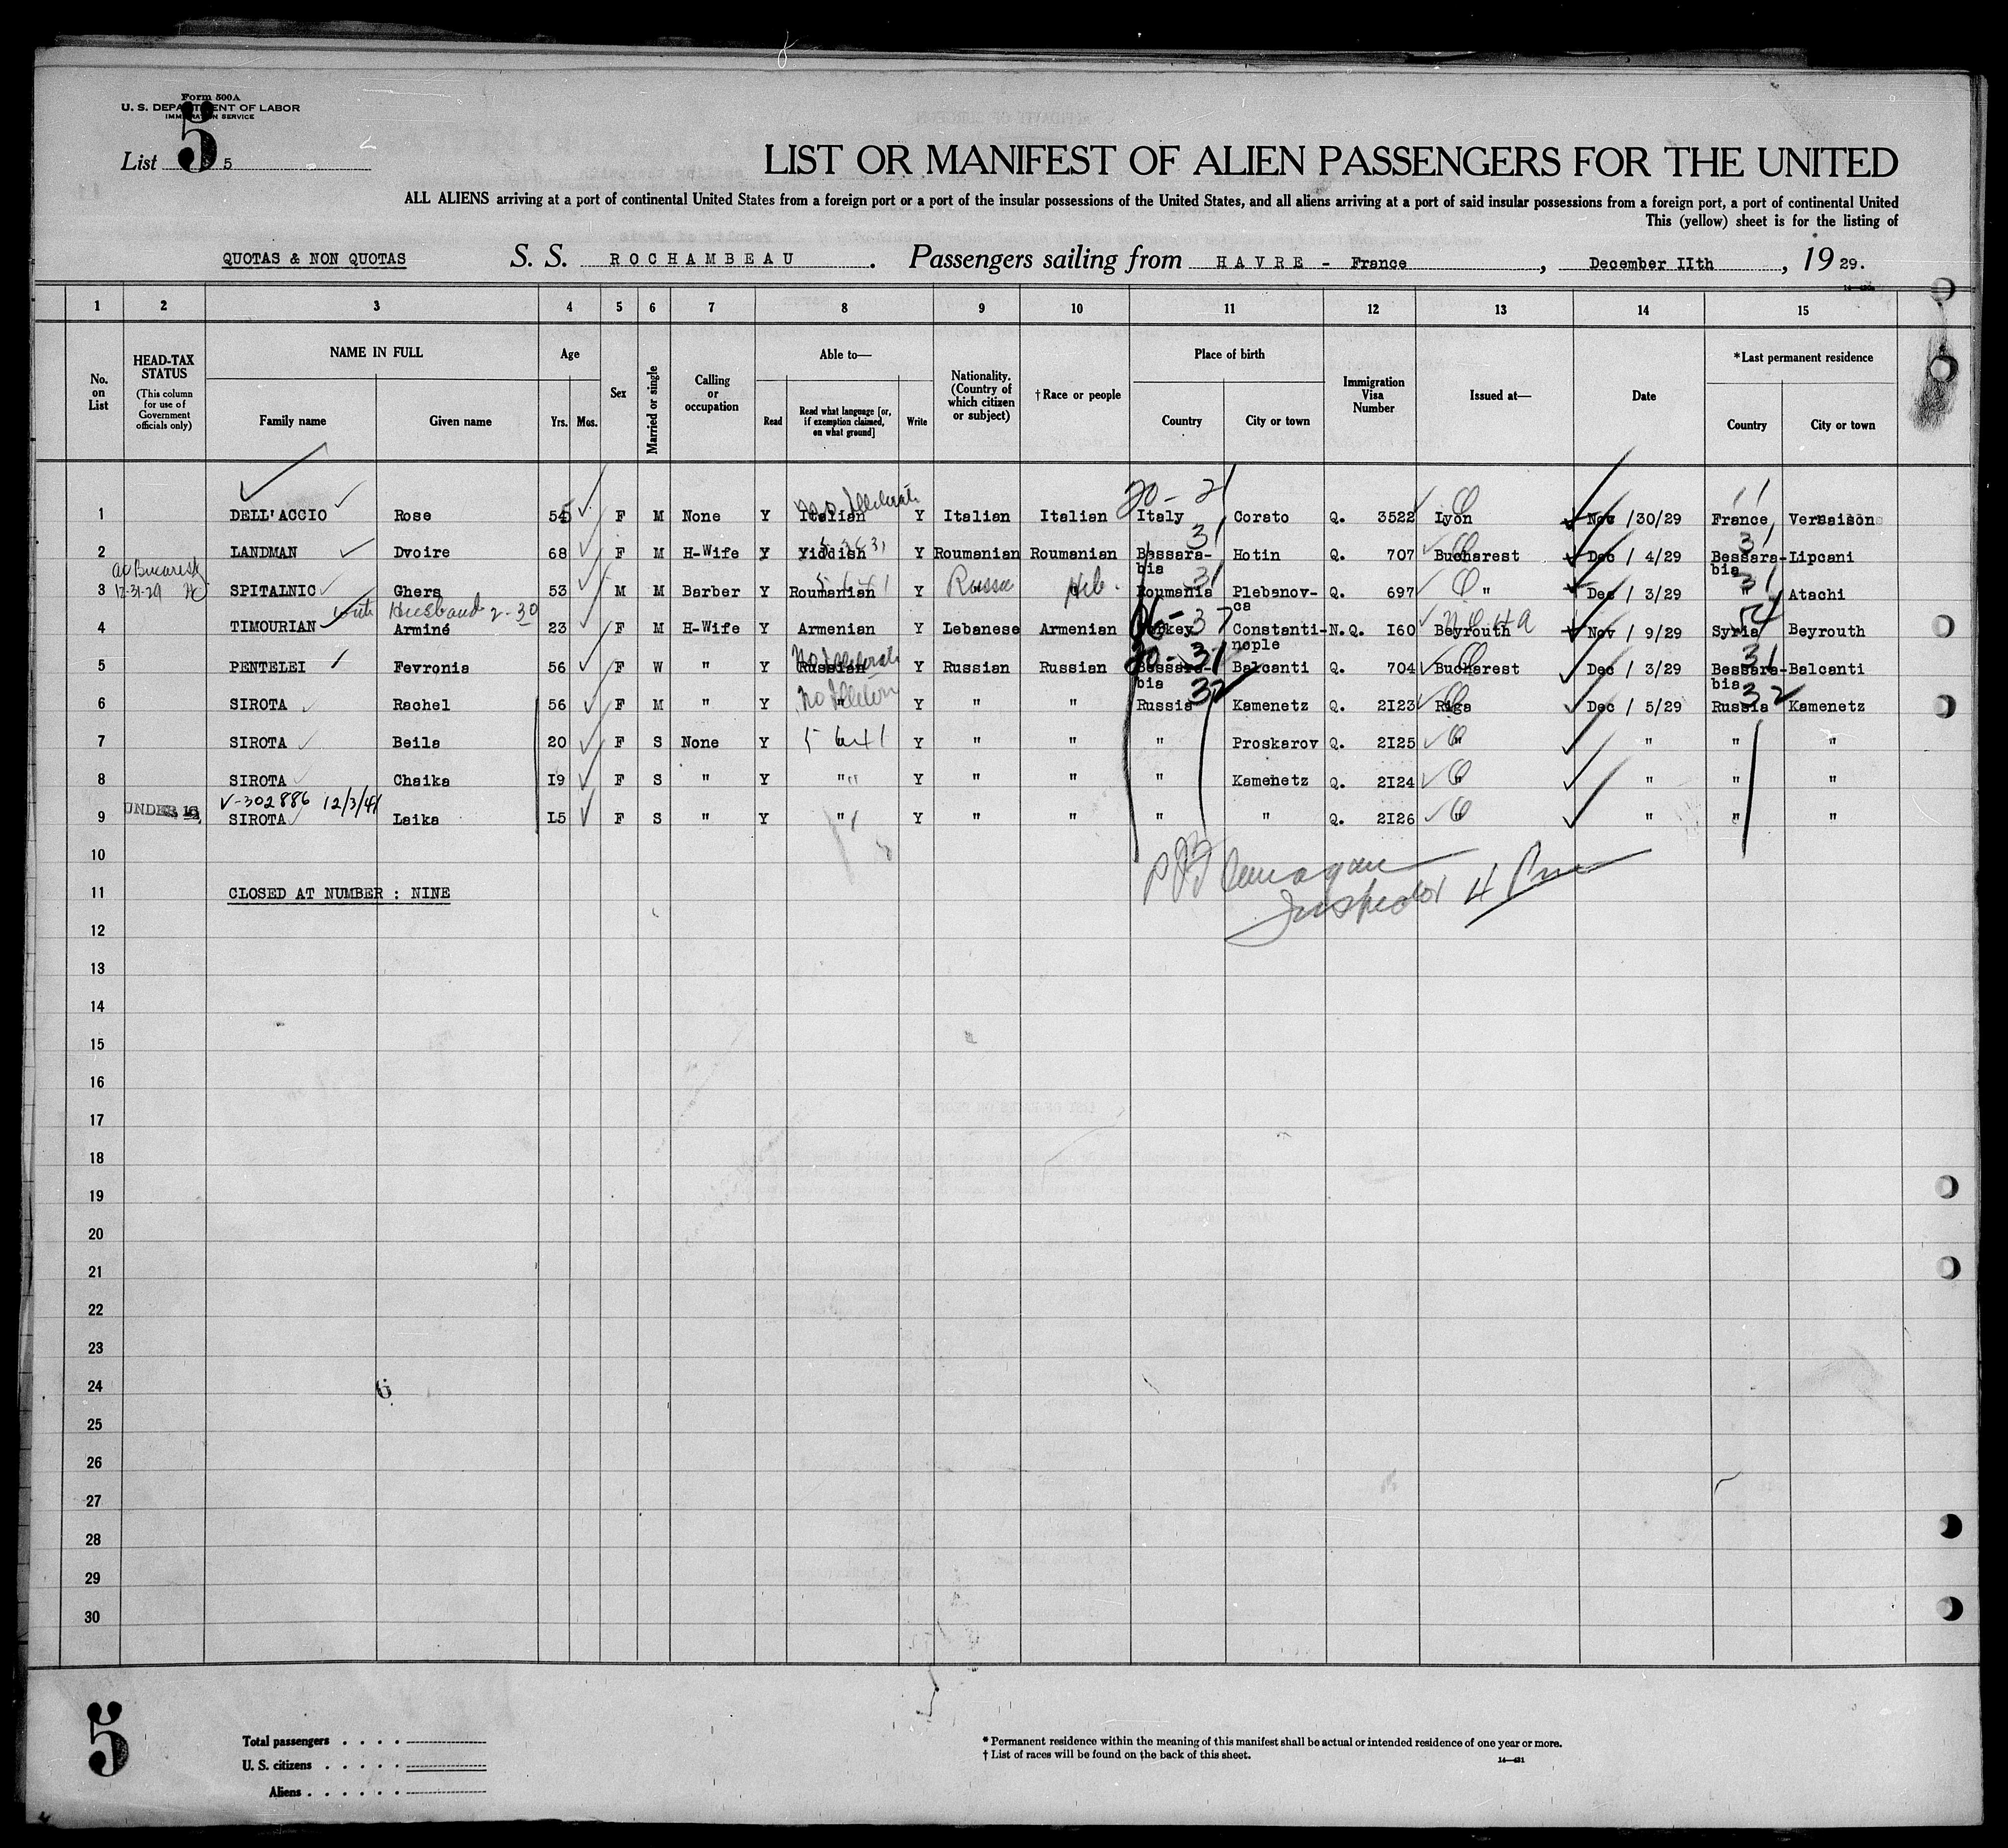 Form 500A
U. S. DEPARTMENT OF LABOR
IMMIGRATION SERVICE
List 5 5
LIST OR MANIFEST OF ALIEN PASSENGERS FOR THE UNITED
ALL ALIENS arriving at a port of continental United States from a foreign port or a port of the insular possessions of the United States, and all aliens arriving at a port of said insular possessions from a foreign port, a port of continental United
This (yellow) sheet is for the listing of
QUOTAS & NON QUOTAS S. S. ROCHAMBEAU. Passengers sailing from HAVRE - France, December IIth, 19 29.
1 2 3 4 5 6 7 8 9 10 11 12 13 14 15
No. on List
HEAD-TAX STATUS (This column for use of Government officials only)
NAME IN FULL Family name Given name
Age Yrs. Mos.
Sex
Married or single
Calling or occupation
Able to— Read Read what language [or, if exemption claimed, on what ground] Write
Nationality. (Country of which citizen or subject)
†Race or people
Place of birth Country City or town
Immigration Visa Number
Issued at—
Date
*Last permanent residence Country City or town
20 - 21
1 DELL'ACCIO Rose 54 F M None Y Italian Y Italian Italian Italy Corato Q. 3522 Lyon Nov /30/29 France Vernaison
31
2 LANDMAN Dvoire 68 F M H-Wife Y Yiddish Y Roumanian Roumanian Bessarabia Hotin Q. 707 Bucharest Dec / 4/29 Bessarabia Lipcani
12-31-29
3 SPITALNIC Ghers 53 M M Barber Y Roumanian Y Russa Heb. Roumania Plebanovca Q. 697 " Dec / 3/29 " Atachi
with Husband 2-30
4 TIMOURIAN Arminé 23 F M H-Wife Y Armenian Y Lebanese Armenian Turkey Constantinople N.Q. I60 Beyrouth Nov / 9/29 Syria Beyrouth
5 PENTELEI Fevronia 56 F W " Y Russian Y Russian Russian Bessarabia Balcanti Q. 704 Bucharest Dec / 3/29 Bessarabia Balcanti
6 SIROTA Rachel 56 F M " Y " Y " " Russia 32 Kamenetz Q. 2I23 Riga Dec / 5/29 Russia 32 Kamenetz
7 SIROTA Beila 20 F S None Y 5 641 Y " " " Proskarov Q. 2I25 " " " "
8 SIROTA Chaika I9 F S " Y " Y " " " Kamenetz Q. 2I24 " " " "
V-302886 12/3/41
9 UNDER 16 SIROTA Laika I5 F S " Y " Y " " " " Q. 2I26 " " " "
10
Inspector
11 CLOSED AT NUMBER : NINE
12
13
14
15
16
17
18
19
20
21
22
23
24
6
25
26
27
28
29
30
5
Total passengers
U. S. citizens
Aliens
* Permanent residence within the meaning of this manifest shall be actual or intended residence of one year or more.
† List of races will be found on the back of this sheet.